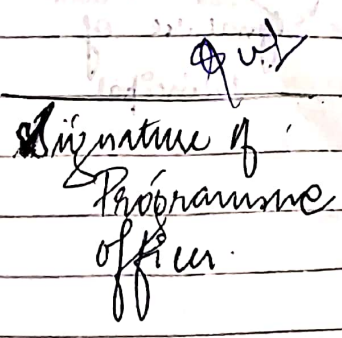 Signature of
Programme
officer.